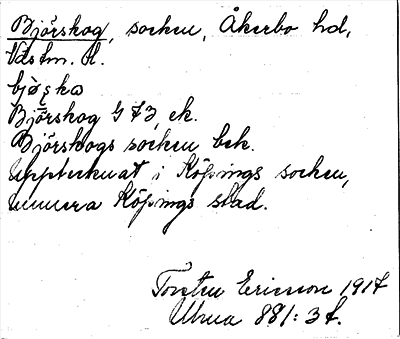 Björskog, socken, Åkerbo hd,
Vstm. l.
Björskog G 73, ek.
Björskogs socken bek.
Upptecknat i Köpings socken,
numera Köpings stad.
Torsten Ericsson 1917
Uhea 881: 3 f.